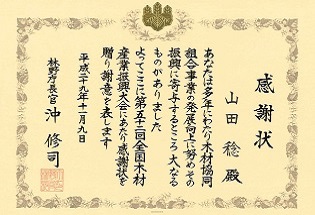 感謝状
山田稔殿
あなたは多年にわたり木材協同
組合事業の発展向上に努めその
振興に寄与するところ大なる
ものがありました
よってここに第五十二回全国木材
産業振興大会にあたり感謝状を
贈り謝意を表します
平成二十九年十一月九日
林野庁長官沖修司